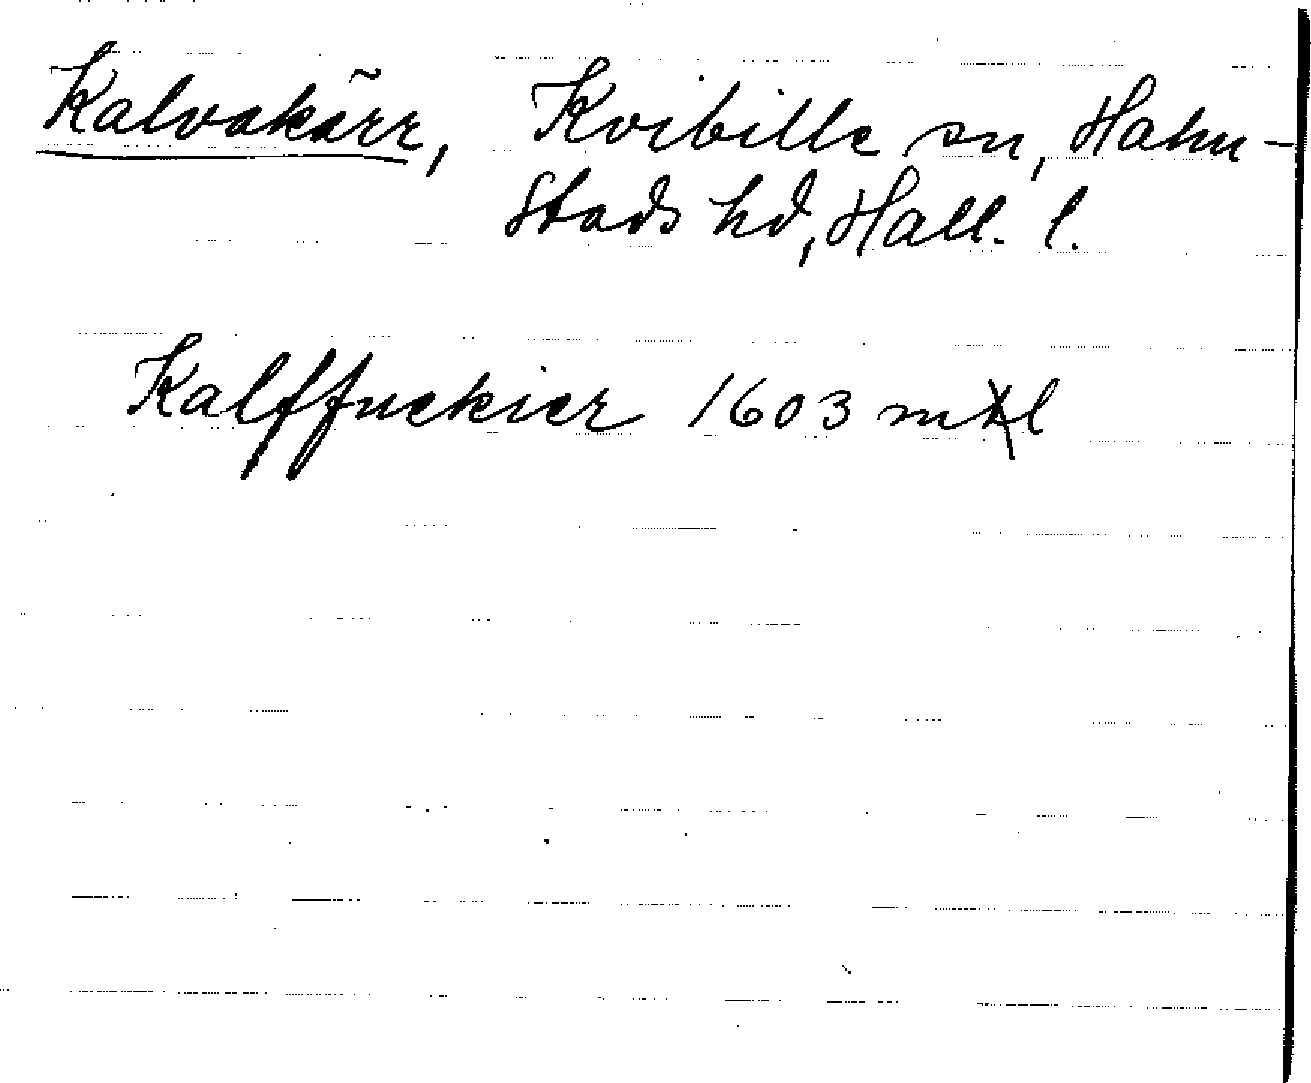 Kalvakärr, Kvibille sn, Halm-
stads hd, Hall. l.
Kalffuekier 1603 mtl